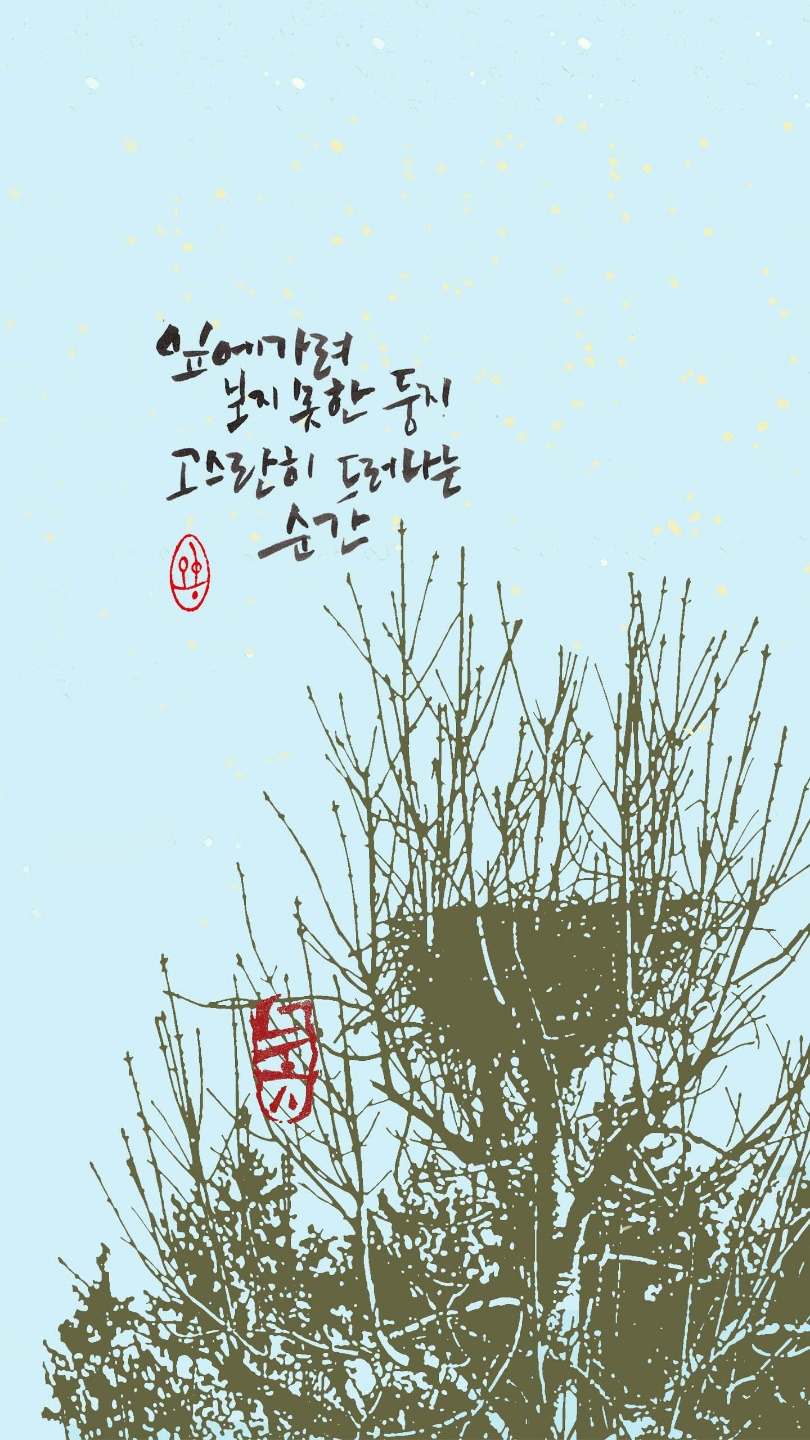 잎에가려
보지 못한 둥지
고스란히 드러나는
순간